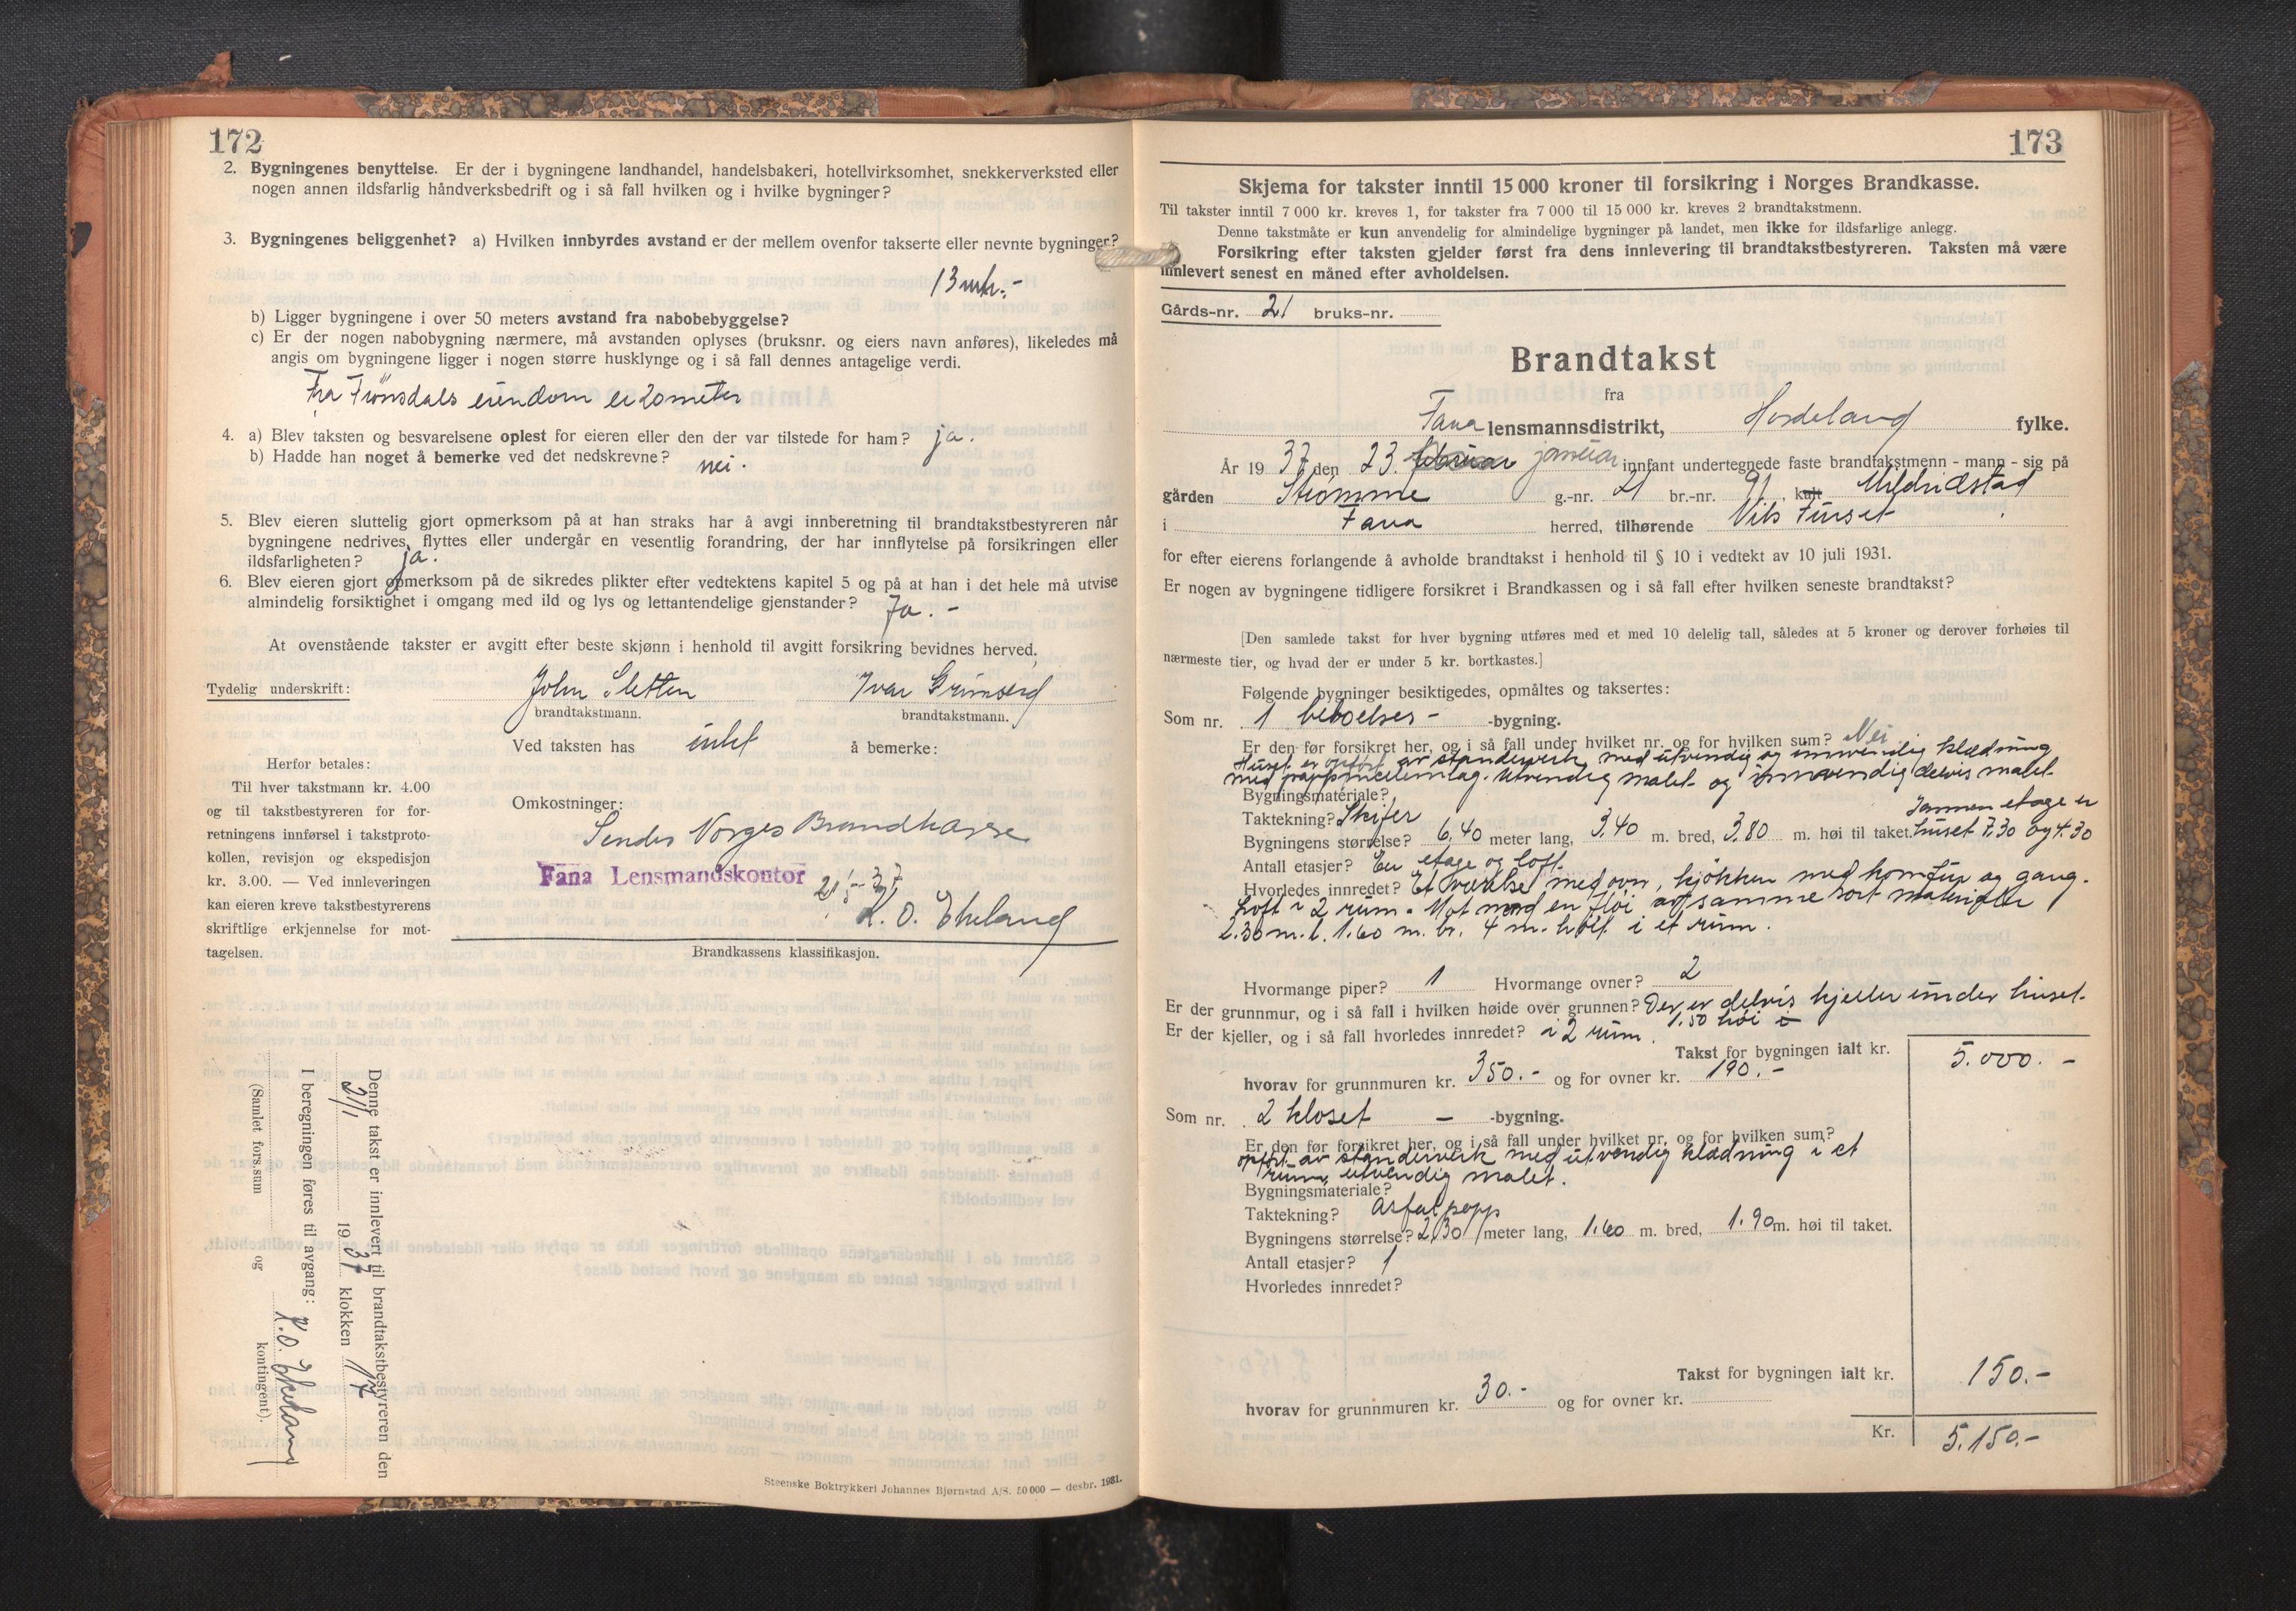 172
2. Bygningenes benyttelse. Er der i bygningene landhandel, handelsbakeri, hotellvirksomhet, snekkerverksted eller
nogen annen ildsfarlig håndverksbedrift og i så fall hvilken og i hvilke bygninger?
3. Bygningenes beliggenhet? a) Hvilken innbyrdes avstand er der mellem ovenfor takserte eller nevnte bygninger?
13 mtr.-
b) Ligger bygningene i over 50 meters avstand fra nabobebyggelse?
c) Er der nogen nabobygning nærmere, må avstanden oplyses (bruksnr. og eiers navn anføres), likeledes må
angis om bygningene ligger i nogen større husklynge og i så fall dennes antagelige verdi.
Fra Frønsdals eiendom er 20 meter
4. a) Blev taksten og besvarelsene oplest for eieren eller den der var tilstede for ham? ja.
b) Hadde han noget å bemerke ved det nedskrevne? nei.
5. Blev eieren sluttelig gjort opmerksom på at han straks har å avgi innberetning til brandtakstbestyreren når
bygningene nedrives, flyttes eller undergår en vesentlig forandring, der har innflytelse på forsikringen eller
ildsfarligheten? ja.
6. Blev eieren gjort opmerksom på de sikredes plikter efter vedtektens kapitel 5 og på at han i det hele må utvise
almindelig forsiktighet i omgang med ild og lys og lettantendelige gjenstander? Ja.-
At ovenstående takster er avgitt efter beste skjønn i henhold til avgitt forsikring bevidnes herved.
Tydelig underskrift: John Sletten Ivar Grimseid
brandtakstmann. brandtakstmann.
Ved taksten has intet å bemerke:
Herfor betales:
Til hver takstmann kr. 4.00
og til takstbestyreren for for-
retningens innførsel i takstproto-
kollen, revisjon og ekspedisjon
kr. 3.00. — Ved innleveringen
kan eieren kreve takstbestyrerens
skriftlige erkjennelse for mot-
tagelsen.
Omkostninger:
Sendes Norges Brandkasse
Fana Lensmandskontor 21/1-37
K. O. Ekeland
Brandkassens klassifikasjon.
Denne takst er innlevert til brandtakstbestyreren den
21/1 1937 klokken 17
I beregningen føres til avgang: K. O. Ekeland
(Samlet fors.sum og kontingent).
Steenske Boktrykkeri Johannes Bjørnstad A/S. 50 000 — desbr. 1931.
173
Skjema for takster inntil 15 000 kroner til forsikring i Norges Brandkasse.
Til takster inntil 7 000 kr. kreves 1, for takster fra 7 000 til 15 000 kr. kreves 2 brandtakstmenn.
Denne takstmåte er kun anvendelig for almindelige bygninger på landet, men ikke for ildsfarlige anlegg.
Forsikring efter taksten gjelder først fra dens innlevering til brandtakstbestyreren. Taksten må være
innlevert senest en måned efter avholdelsen.
Gårds-nr. 21 bruks-nr.
Brandtakst
fra
Fana lensmannsdistrikt, Hordaland fylke.
År 1937 den 23. februar januar innfant undertegnede faste brandtakstmenn - mann - sig på
gården Strømme g.-nr. 21 br.-nr. 91, kalt Mildridstad
i Fana herred, tilhørende Nils Furset
for efter eierens forlangende å avholde brandtakst i henhold til § 10 i vedtekt av 10 juli 1931.
Er nogen av bygningene tidligere forsikret i Brandkassen og i så fall efter hvilken seneste brandtakst?
[Den samlede takst for hver bygning utføres med et med 10 delelig tall, således at 5 kroner og derover forhøies til
nærmeste tier, og hvad der er under 5 kr. bortkastes.]
Følgende bygninger besiktigedes, opmåltes og taksertes:
Som nr. 1 beboelses- -bygning.
Er den før forsikret her, og i så fall under hvilket nr. og for hvilken sum? Nei
Huset er opført av standerverk med utvendig og innvendig klædning
med pappmellemlag. Utvendig malet og innvendig delvis malet
Bygningsmateriale?
Taktekning? Skifer
Bygningens størrelse? 6,40 meter lang, 3,40 m. bred, 3,80 m. høi til taket. I annen etage er huset 7,30 og 4,30
Antall etasjer? En etage og loft.
Hvorledes innredet? Et værelse med ovn, kjøkken med komfur og gang.
Loft i 2 rum. Mot nord en fløi av samme sort materialer
2.30 m. l. 1.60 m. br. 4 m. høit i et rum.
Hvormange piper? 1 Hvormange ovner? 2
Er der grunnmur, og i så fall i hvilken høide over grunnen? Der er delvis kjeller under huset.
1.50 høi
Er der kjeller, og i så fall hvorledes innredet? i 2 rum.
Takst for bygningen ialt kr. 5.000.-
hvorav for grunnmuren kr. 350.- og for ovner kr. 190.-
Som nr. 2 kloset - -bygning.
Er den før forsikret her, og i så fall under hvilket nr. og for hvilken sum?
opført av standerverk med utvendig klædning i et
rum, utvendig malet.
Bygningsmateriale?
Taktekning? Asfaltpapp
Bygningens størrelse? 2,30 meter lang, 1.60 m. bred, 1.90 m. høi til taket.
Antall etasjer? 1
Hvorledes innredet?
Takst for bygningen ialt kr. 150.-
hvorav for grunnmuren kr. 30.- og for ovner kr.
Kr. 5.150.-